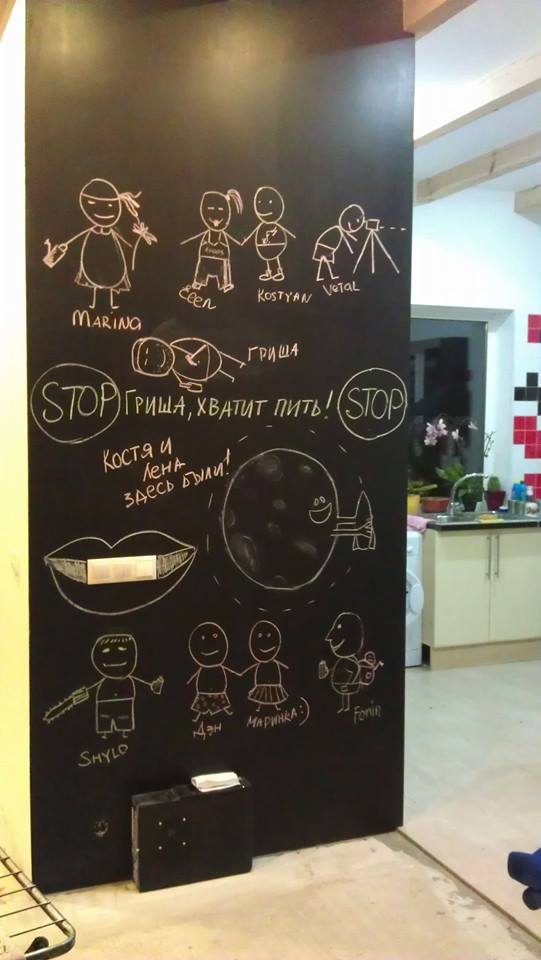 MARINA
KOSTYAN
VETAL
ГРИША
STOP ГРИША, ХВАТИТ ПИТЬ! STOP
КОСТЯ И
ЛЕНА
ЗДЕСЬ БЫЛИ!
SHYLO
ДЭН
МАРИНКА:)
Fomin